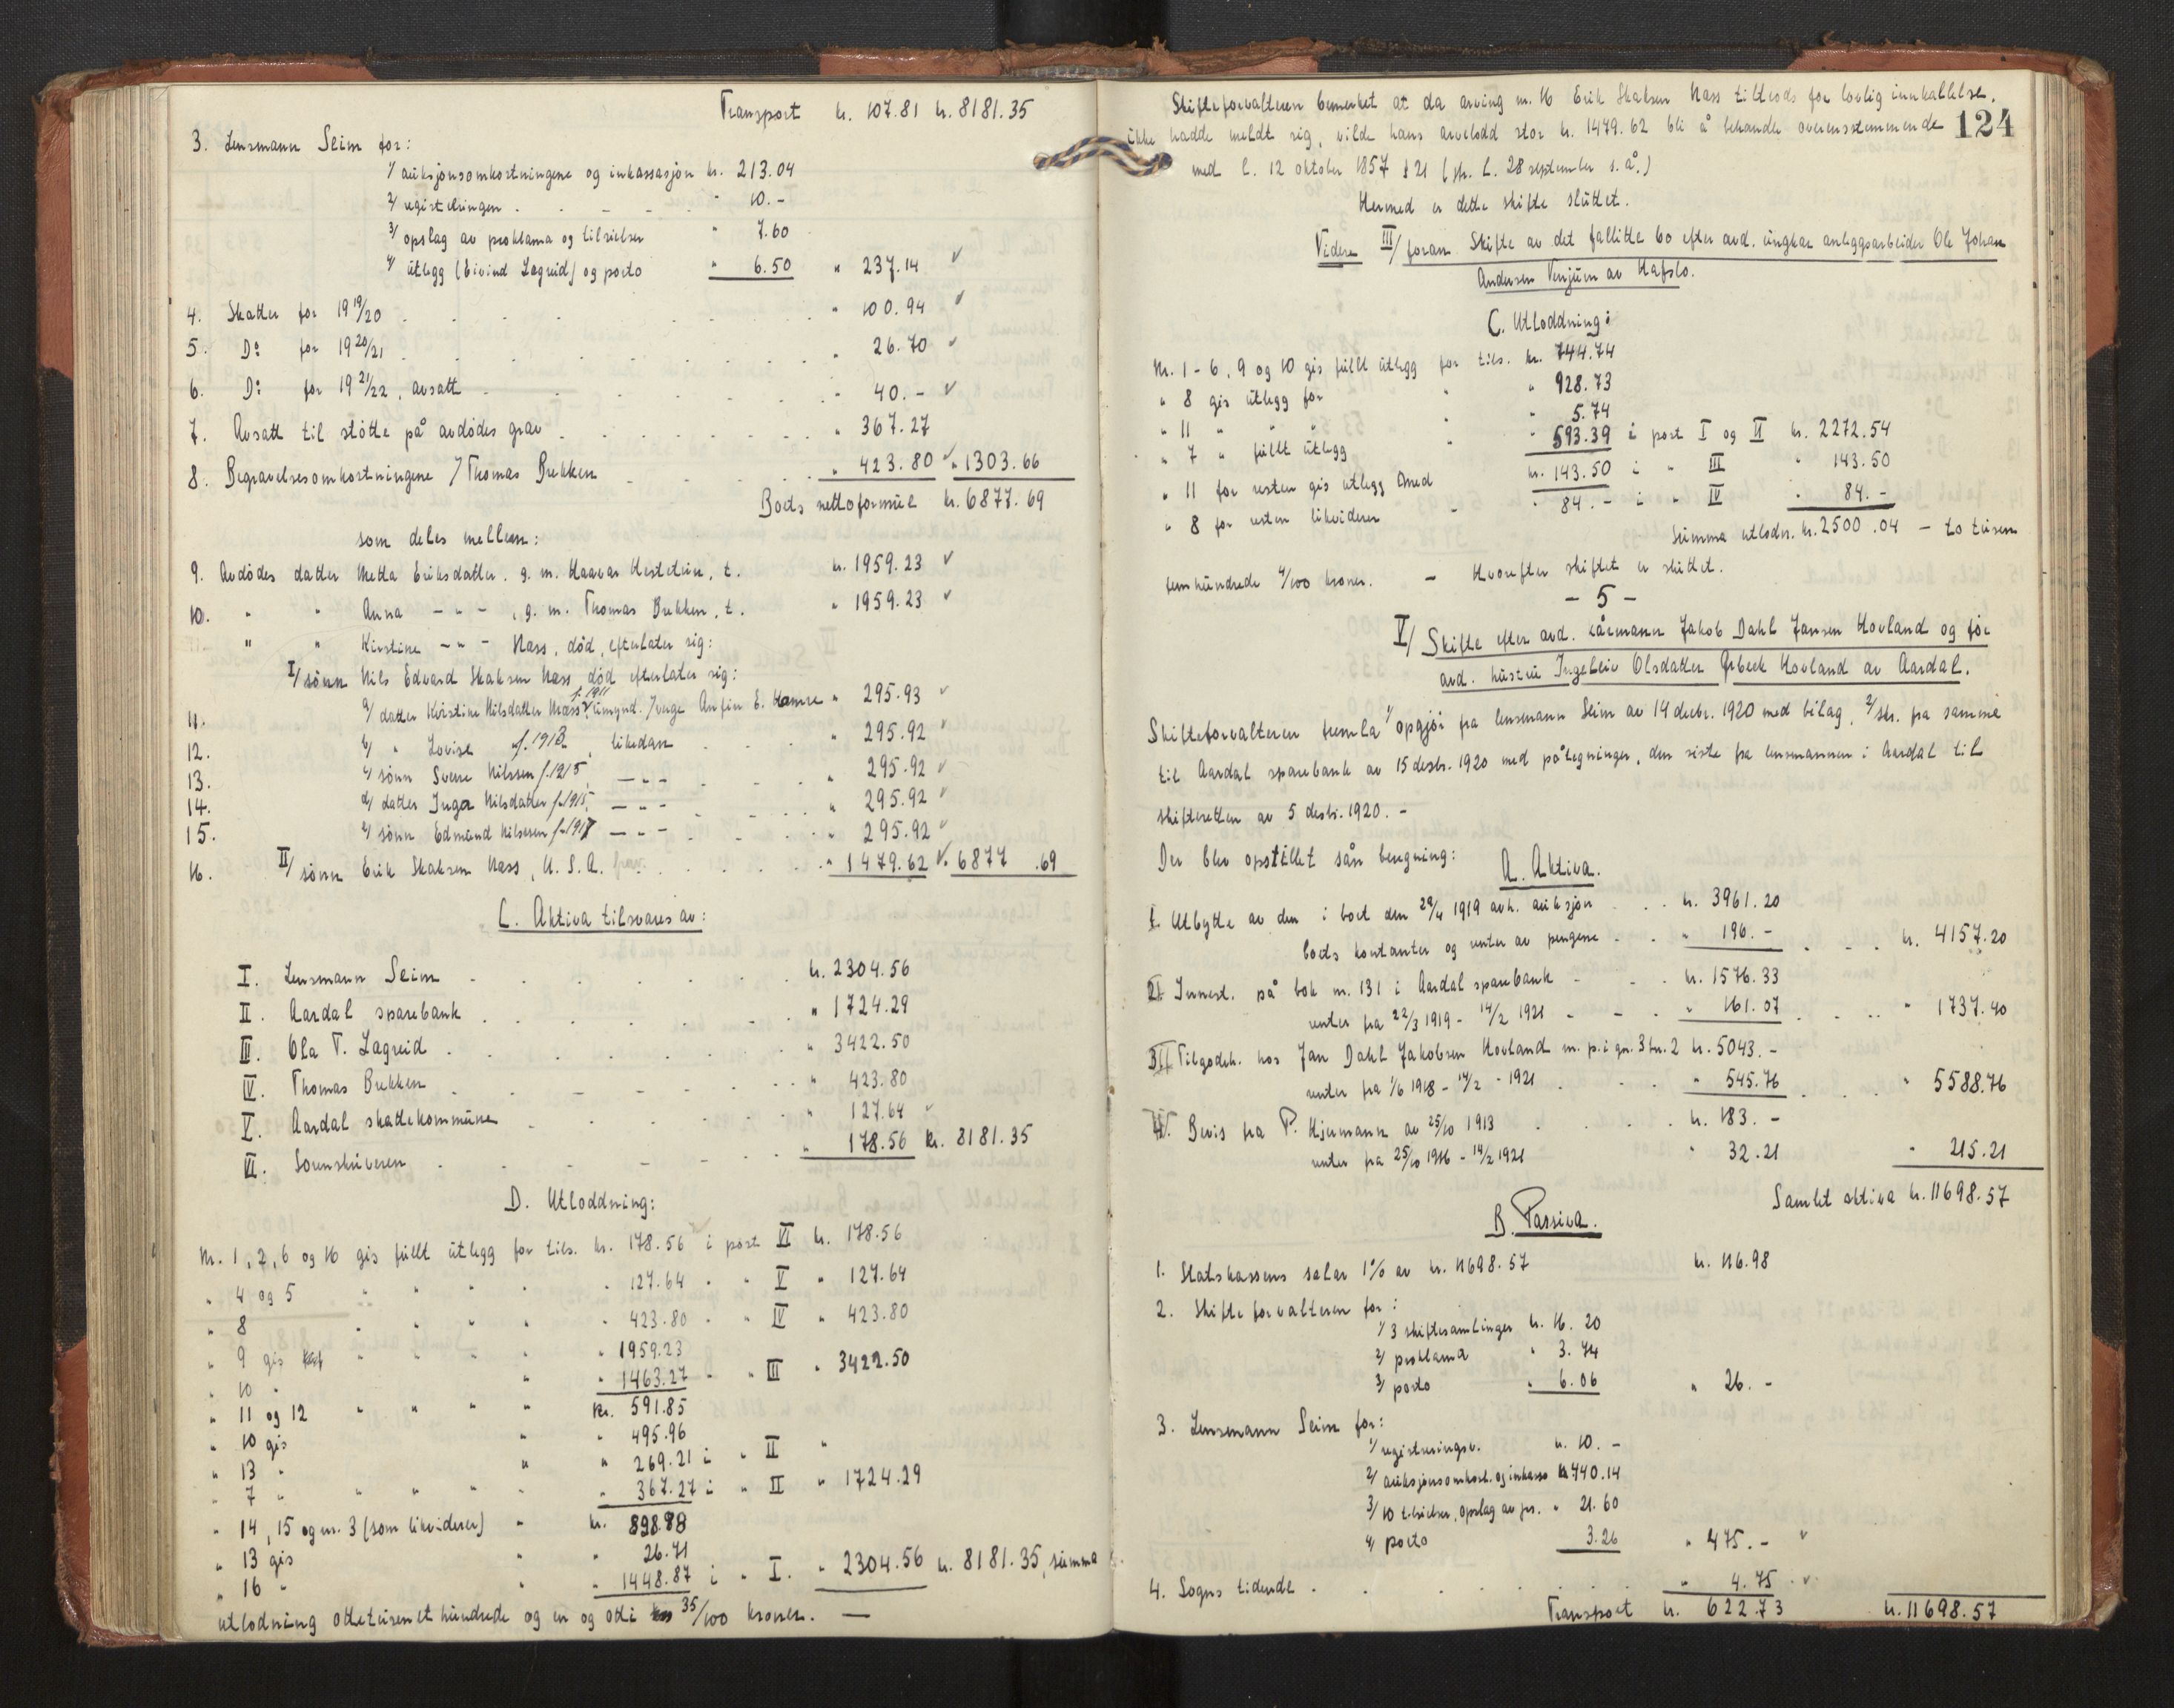 Transport kr. 107.81 kr. 8181.35
3. Lensmann Seim for:
1/ auksjonsomkostningene og inkassasjon kr. 213.04
2/ registreringen . " 10.-
3/ opslag av proklama og tilsielser " 7.60
4/ utlegg (Eivind Lægreid) og porto " 6.50 " 237.14
4. Skatter for 19 19/20 . . " 100.94
5. Do for 19 20/21 . . " 26.70
6. Do for 19 21/22, avsatt . . " 40.-
7. Avsatt til støtte på avdødes grav . . " 367.27
8. Begravelsesomkostningene / Thomas Brekken " 423.80 " 1303.66
Boets nettoformue kr. 6877.69
som deles mellem:
9. Avdødes datter Metta Eriksdatter, g. m. Haavar Hestetun, t. kr. 1959.23
10. " " Anna - " - , g. m. Thomas Brekken, t. " 1959.23
" " Kirstine - " - Næss, død, efterlater sig:
I/ sønn Nils Edvard Skaksen Næss død efterlater sig:
11. a/ datter Kirstine Nilsdatter Næss f. 1911 umynd. / verge Anfin E. Hamre " 295.93
12. b/ " Lovise f. 1913, likedan " 295.92
13. c/ sønn Sverre Nilssen f. 1915, - " - " 295.92
14. d/ datter Inga Nilsdatter f. 1915, - " - " 295.92
15. e/ sønn Edmund Nilssen f. 1917 - " - " 295.92
16. II/ sønn Erik Skaksen Næss, U. S. A. " 1479.62 " 6877.69
C. Aktiva tilsvares av:
I. Lensmann Seim . . kr. 2304.56
II. Aardal sparebank . . " 1724.29
III. Ola T. Lægreid . . " 3422.50
IV. Thomas Brekken . . " 423.80
V. Aardal skattekommune . . " 127.64
VI. Sorenskriveren . . " 178.56 kr. 8181.35
D. Utloddning:
Nr. 1, 2, 6 og 16 gis fullt utlegg for tils. kr. 178.56 i post VI kr. 178.56
" 4 og 5 " " " " " 127.64 " " V " 127.64
" 8 " " " " " 423.80 " " IV " 423.80
" 9 gis " " " " 1959.23
" 10 " " " 1463.27 " " III " 3422.50
" 11 og 12 " " " " kr. 591.85
" 10 gis " " 495.96
" 13 " " " 269.21 i " II "
" 7 " " " " " " 367.27 i " II " 1724.29
" 14, 15 og nr. 3 (som likviderer) " kr. 898.98
" 13 gis " " 26.71
" 16 " " " 1448.87 i " I. " 2304.56 kr. 8181.35, summa
utlodning ottetusenethundrede og en og otti 35/100 kroner. —
124
Skifteforvalteren bemerket at da arving nr. 16 Erik Skaksen Næss tiltrods for lovlig innkallelse,
ikke hadde meldt sig, vilde hans arvelodd stor kr. 1479.62 bli å behandle overensstemmende
med l. 12 oktober 1857 § 21 (jfr. L. 28 september s. å.)
Hermed er dette skifte sluttet.
Videre III/ foran. Skifte av det fallitte bo efter avd. ungkar anleggsarbeider Ole Johan
Andersen Venjum av Hafslo.
C. Utloddning:
Nr. 1 - 6, 9 og 10 gis fullt utlegg for tils. kr. 744.74
" 8 gis utlegg for " 928.73
" 11 " " " " 5.74
" 7 " fullt utlegg " " 593.39 i post I og II kr. 2272.54
" 11 for resten gis utlegg med kr. 143.50 i " III " 143.50
" 8 for resten likviderer - " 84.- i " IV " 84.-
Summa utlodn. kr. 2500.04 - to tusen
femhundrede 4/100 kroner. - Hvorefter skiftet er sluttet.
- 5 -
V/ Skifte efter avd. kårmann Jakob Dahl Jansen Hovland og før
avd. hustru Ingebleiv Olsdatter Ørbeck Hovland av Aardal.
Skifteforvalteren fremla 1/ opgjør fra lensmann Seim av 14 decbr. 1920 med bilag, 2/ skr. fra samme
til Aardal sparebank av 15 desbr. 1920 med påtegninger, den siste fra lensmannen i Aardal til
skifteretten av 5 desbr. 1920. -
Der blev opstillet sån beregning:
A. Aktiva.
I. Utbytte av den i boet den 29/4 1919 avh. auksjon . . kr. 3961.20
boets kontanter og renter av pengene . . " 196.- . . kr. 4157.20
II. Innest. på bok nr. 131 i Aardal sparebank - . . kr. 1576.33
renter fra 22/3 1919 - 14/2 1921 - - . " 161.07 . . " 1737.40
III. Tilgodeh. hos Jan Dahl Jakobsen Hovland m. p. i gn. 3 bn. 2 kr. 5043.-
renter fra 1/6 1918 - 14/2 - 1921 . . " 545.76 . . " 5588.76
IV. Bevis fra P. Hjermann av 25/10 1913 . . kr. 183.-
renter fra 25/10 1916 - 14/2 1921 " 32.21 " 215.21
Samlet aktiva kr. 11698.57
B. Passiva.
1. Statskassens salær 1% av kr. 11698.57 kr. 116.98
2. Skifteforvalteren for:
1/ 3 skiftesamlinger kr. 16.20
2/ proklama " 3.74
3/ porto " 6.06 " 26.-
3. Lensmann Seim for:
1/ registreringsv. kr. 10.-
2/ auksjonsomkost. og inkasso kr. 440.14
3/ 10 tilsielser, opslag av pr. " 21.60
4/ porto 3.26 " 475.-
4. Sogns tidende . . " 4.75
Transport kr. 622.73 kr. 11698.57